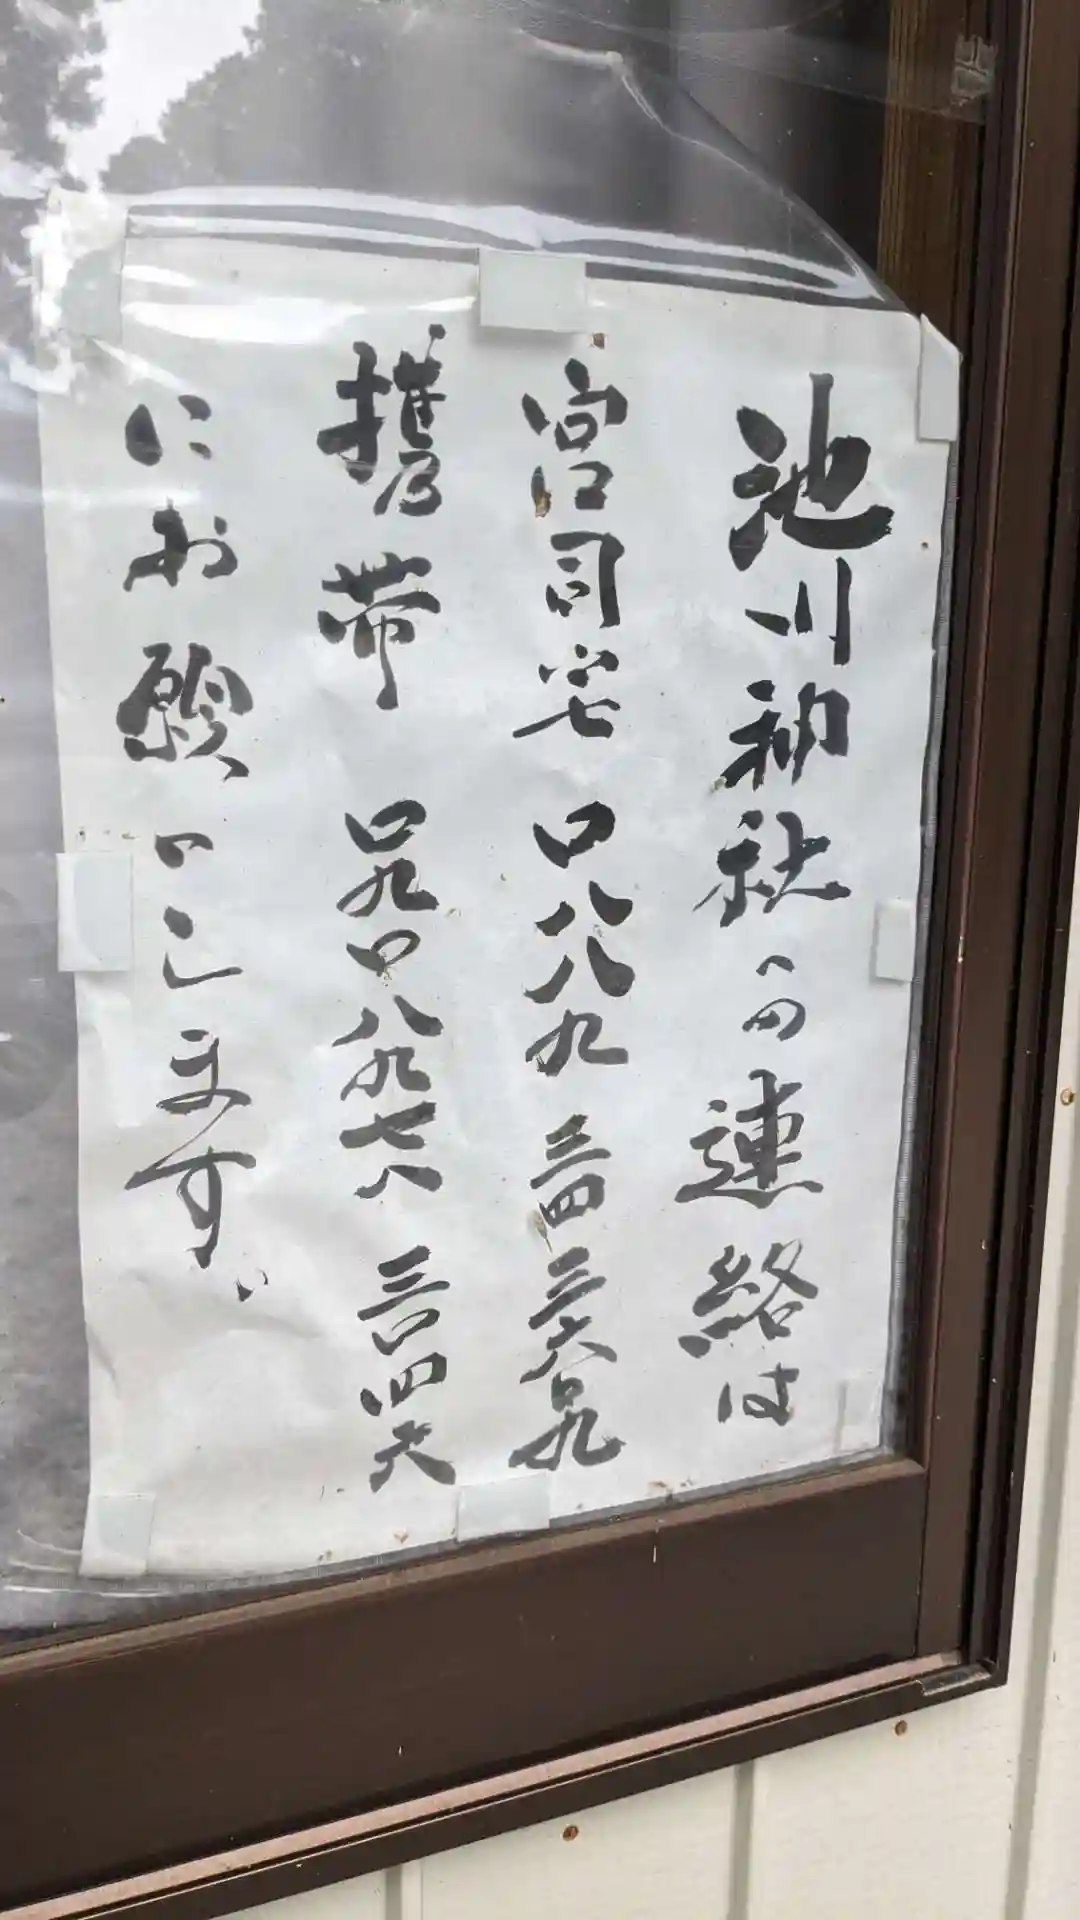 池川神社への連絡は
宮司宅 〇八八九 三四 三六〇九
携帯 〇九〇 八九七八 三〇四六
にお願いします。